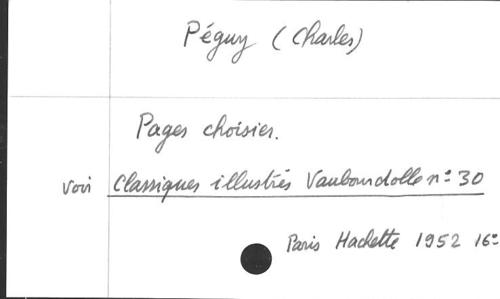 Péguy (Charles)
Pages choisies.
voir Classiques illustrés Vaubourdolle n° 30
Paris Hachette 1952 16°